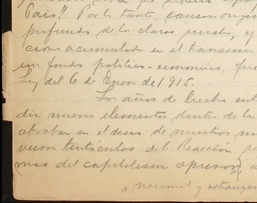 Pais!! Por lo tanto, causas origin
profundo, de la clase rural, y
cion acumulada en el transcur
un fondo politico-economico, fue
Ley del 6 de Enero de 1915.
Los años de lucha ent
dir nuevos elementos dentro de la
abortar en el seno de nuestros
tentáculos de la Reacción
mas del capitalismo opresor
nacional y extranjero